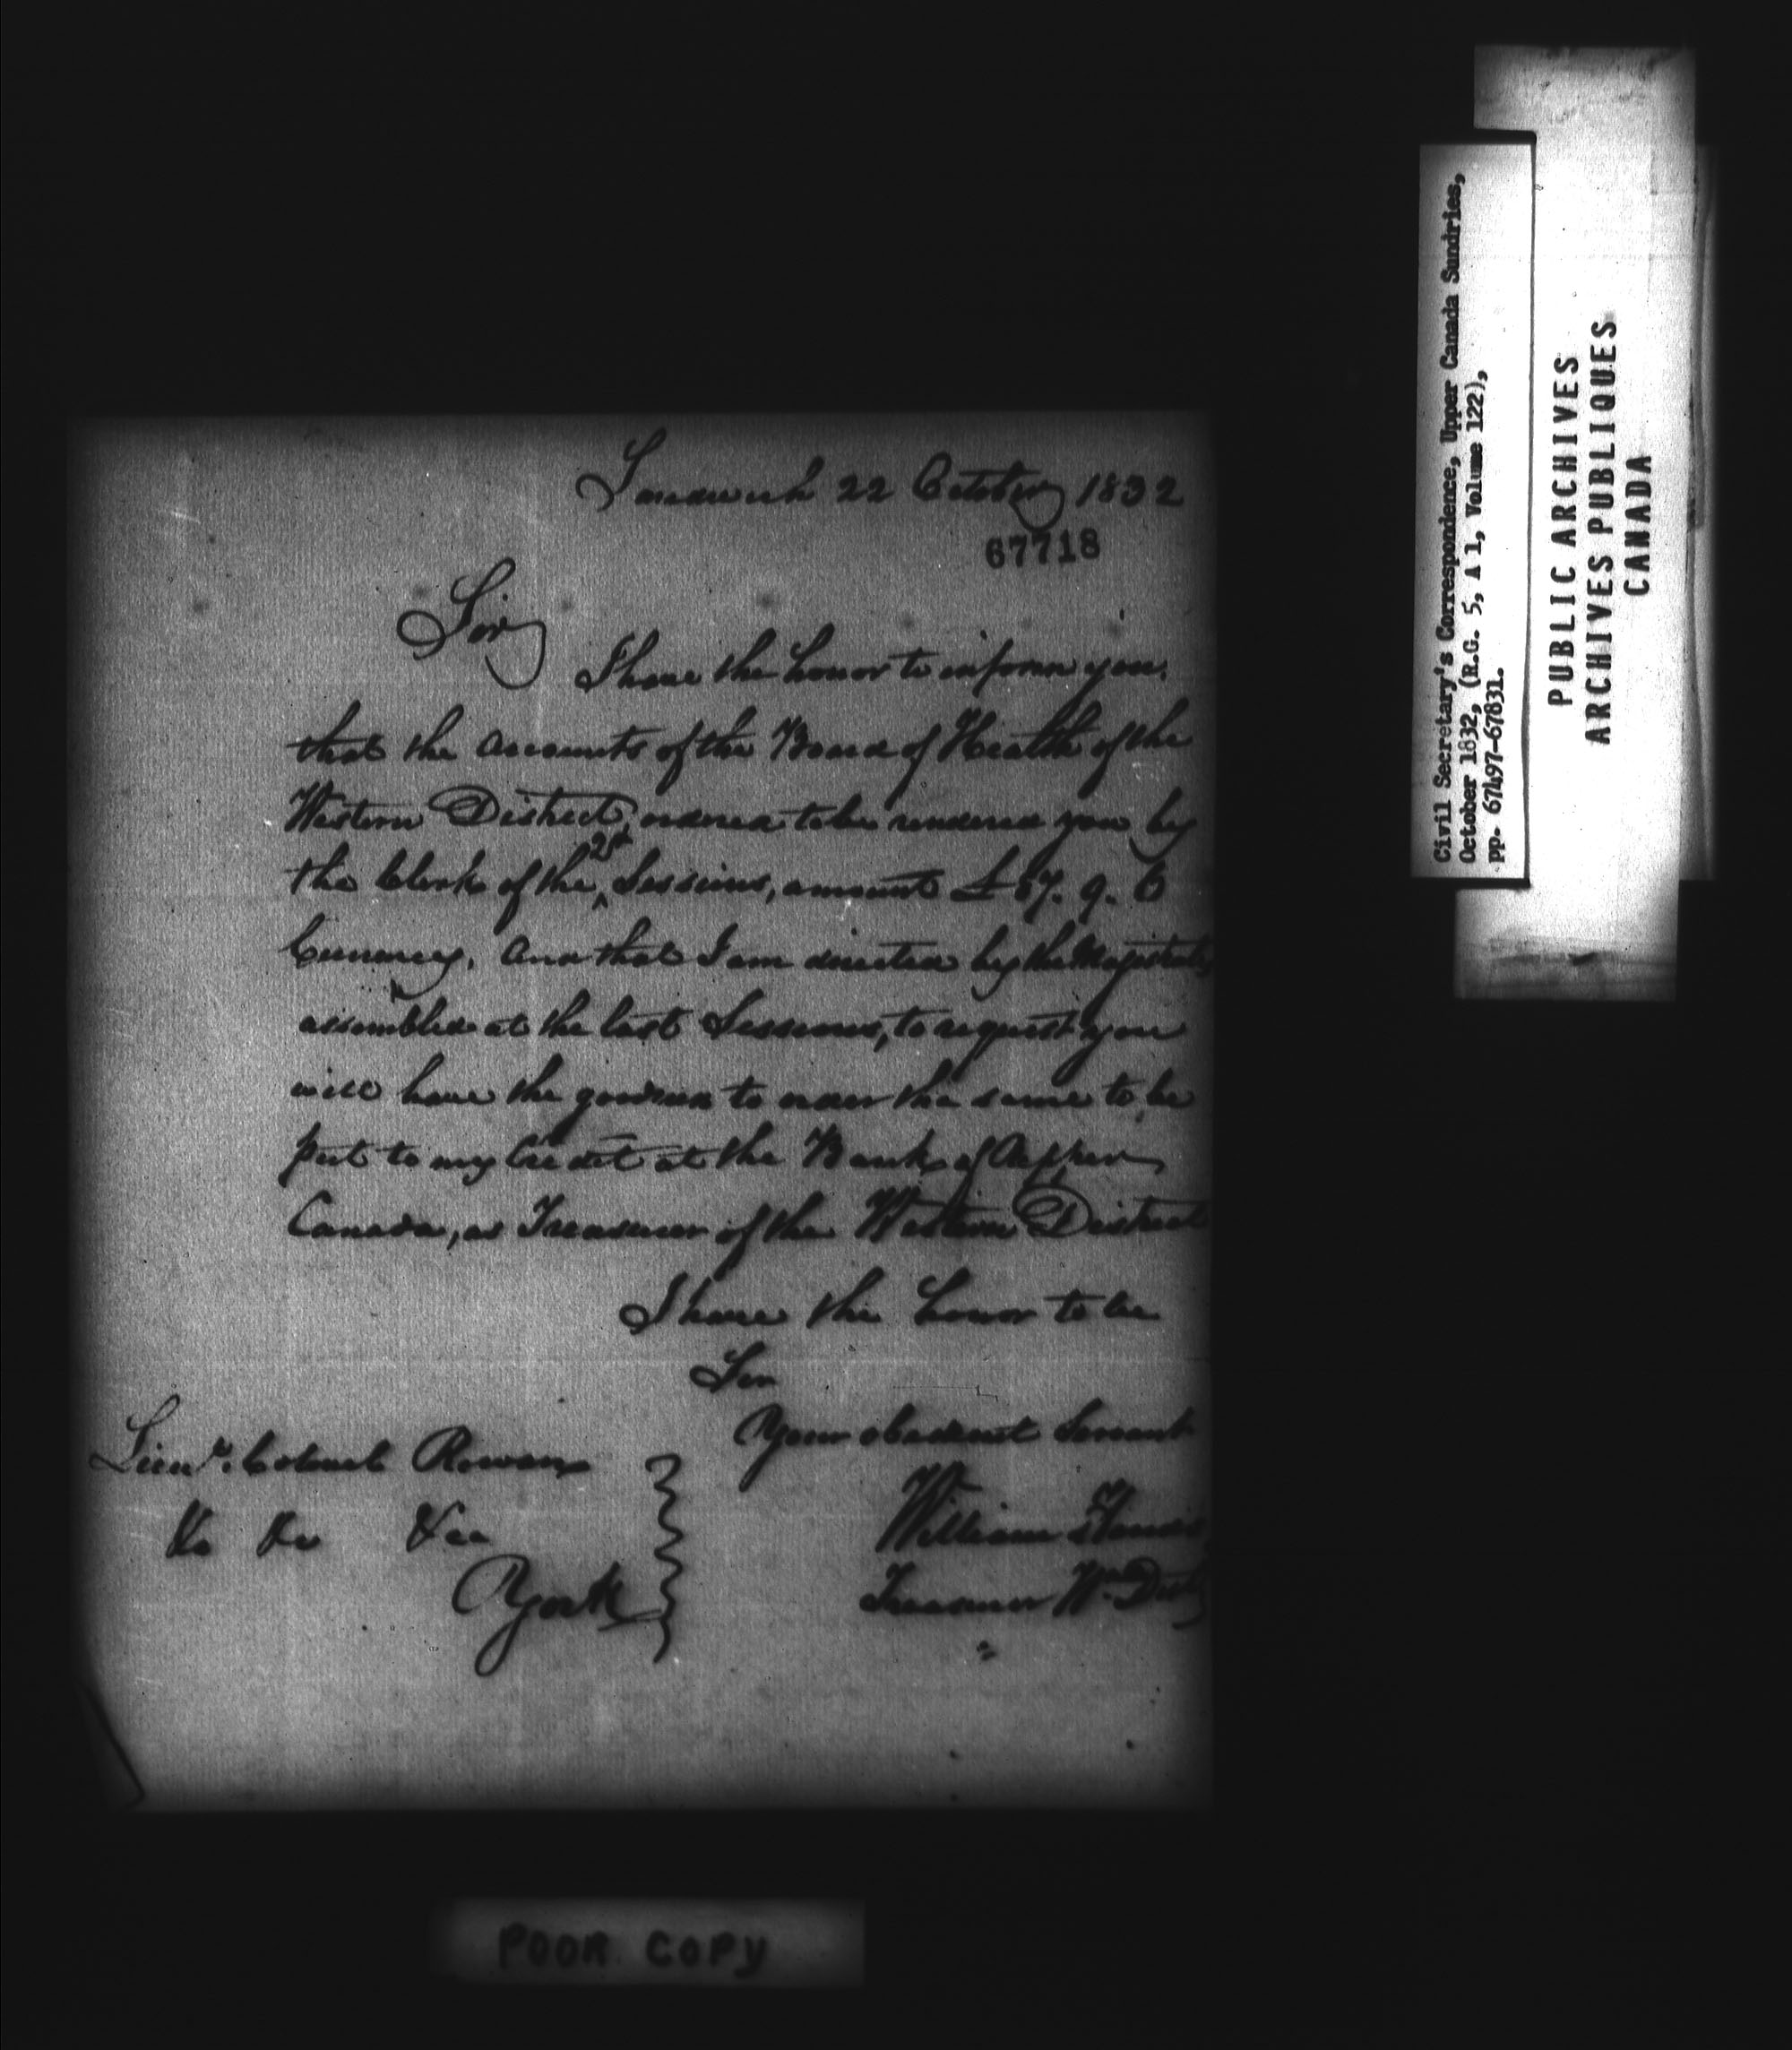 Sandwich 22 October 1832
67718
Sir
I have the honor to inform you,
that the accounts of the Board of Health of the
Western District, ordered to be rendered you by
the Clerk of the Sessions, amount £ 9. 6
Currency. And that I am directed by the Magistrates
assembled at the last Sessions, to request you
will have the goodness to order the same to be
put to my Credit at the Bank of Upper
Canada, as Treasurer of the Western District
I have the honor to be
Sir
Your obedient Servant
William Hands
Treasurer Wn Dist
Lieut. Colonel Rowan
&c &c &cc
York
POOR COPY
Civil Secretary's Correspondence, Upper Canada Sundries,
October 1832, (R.G. 5, A 1, Volume 122),
pp. 67497-67831.
PUBLIC ARCHIVES
ARCHIVES PUBLIQUES
CANADA